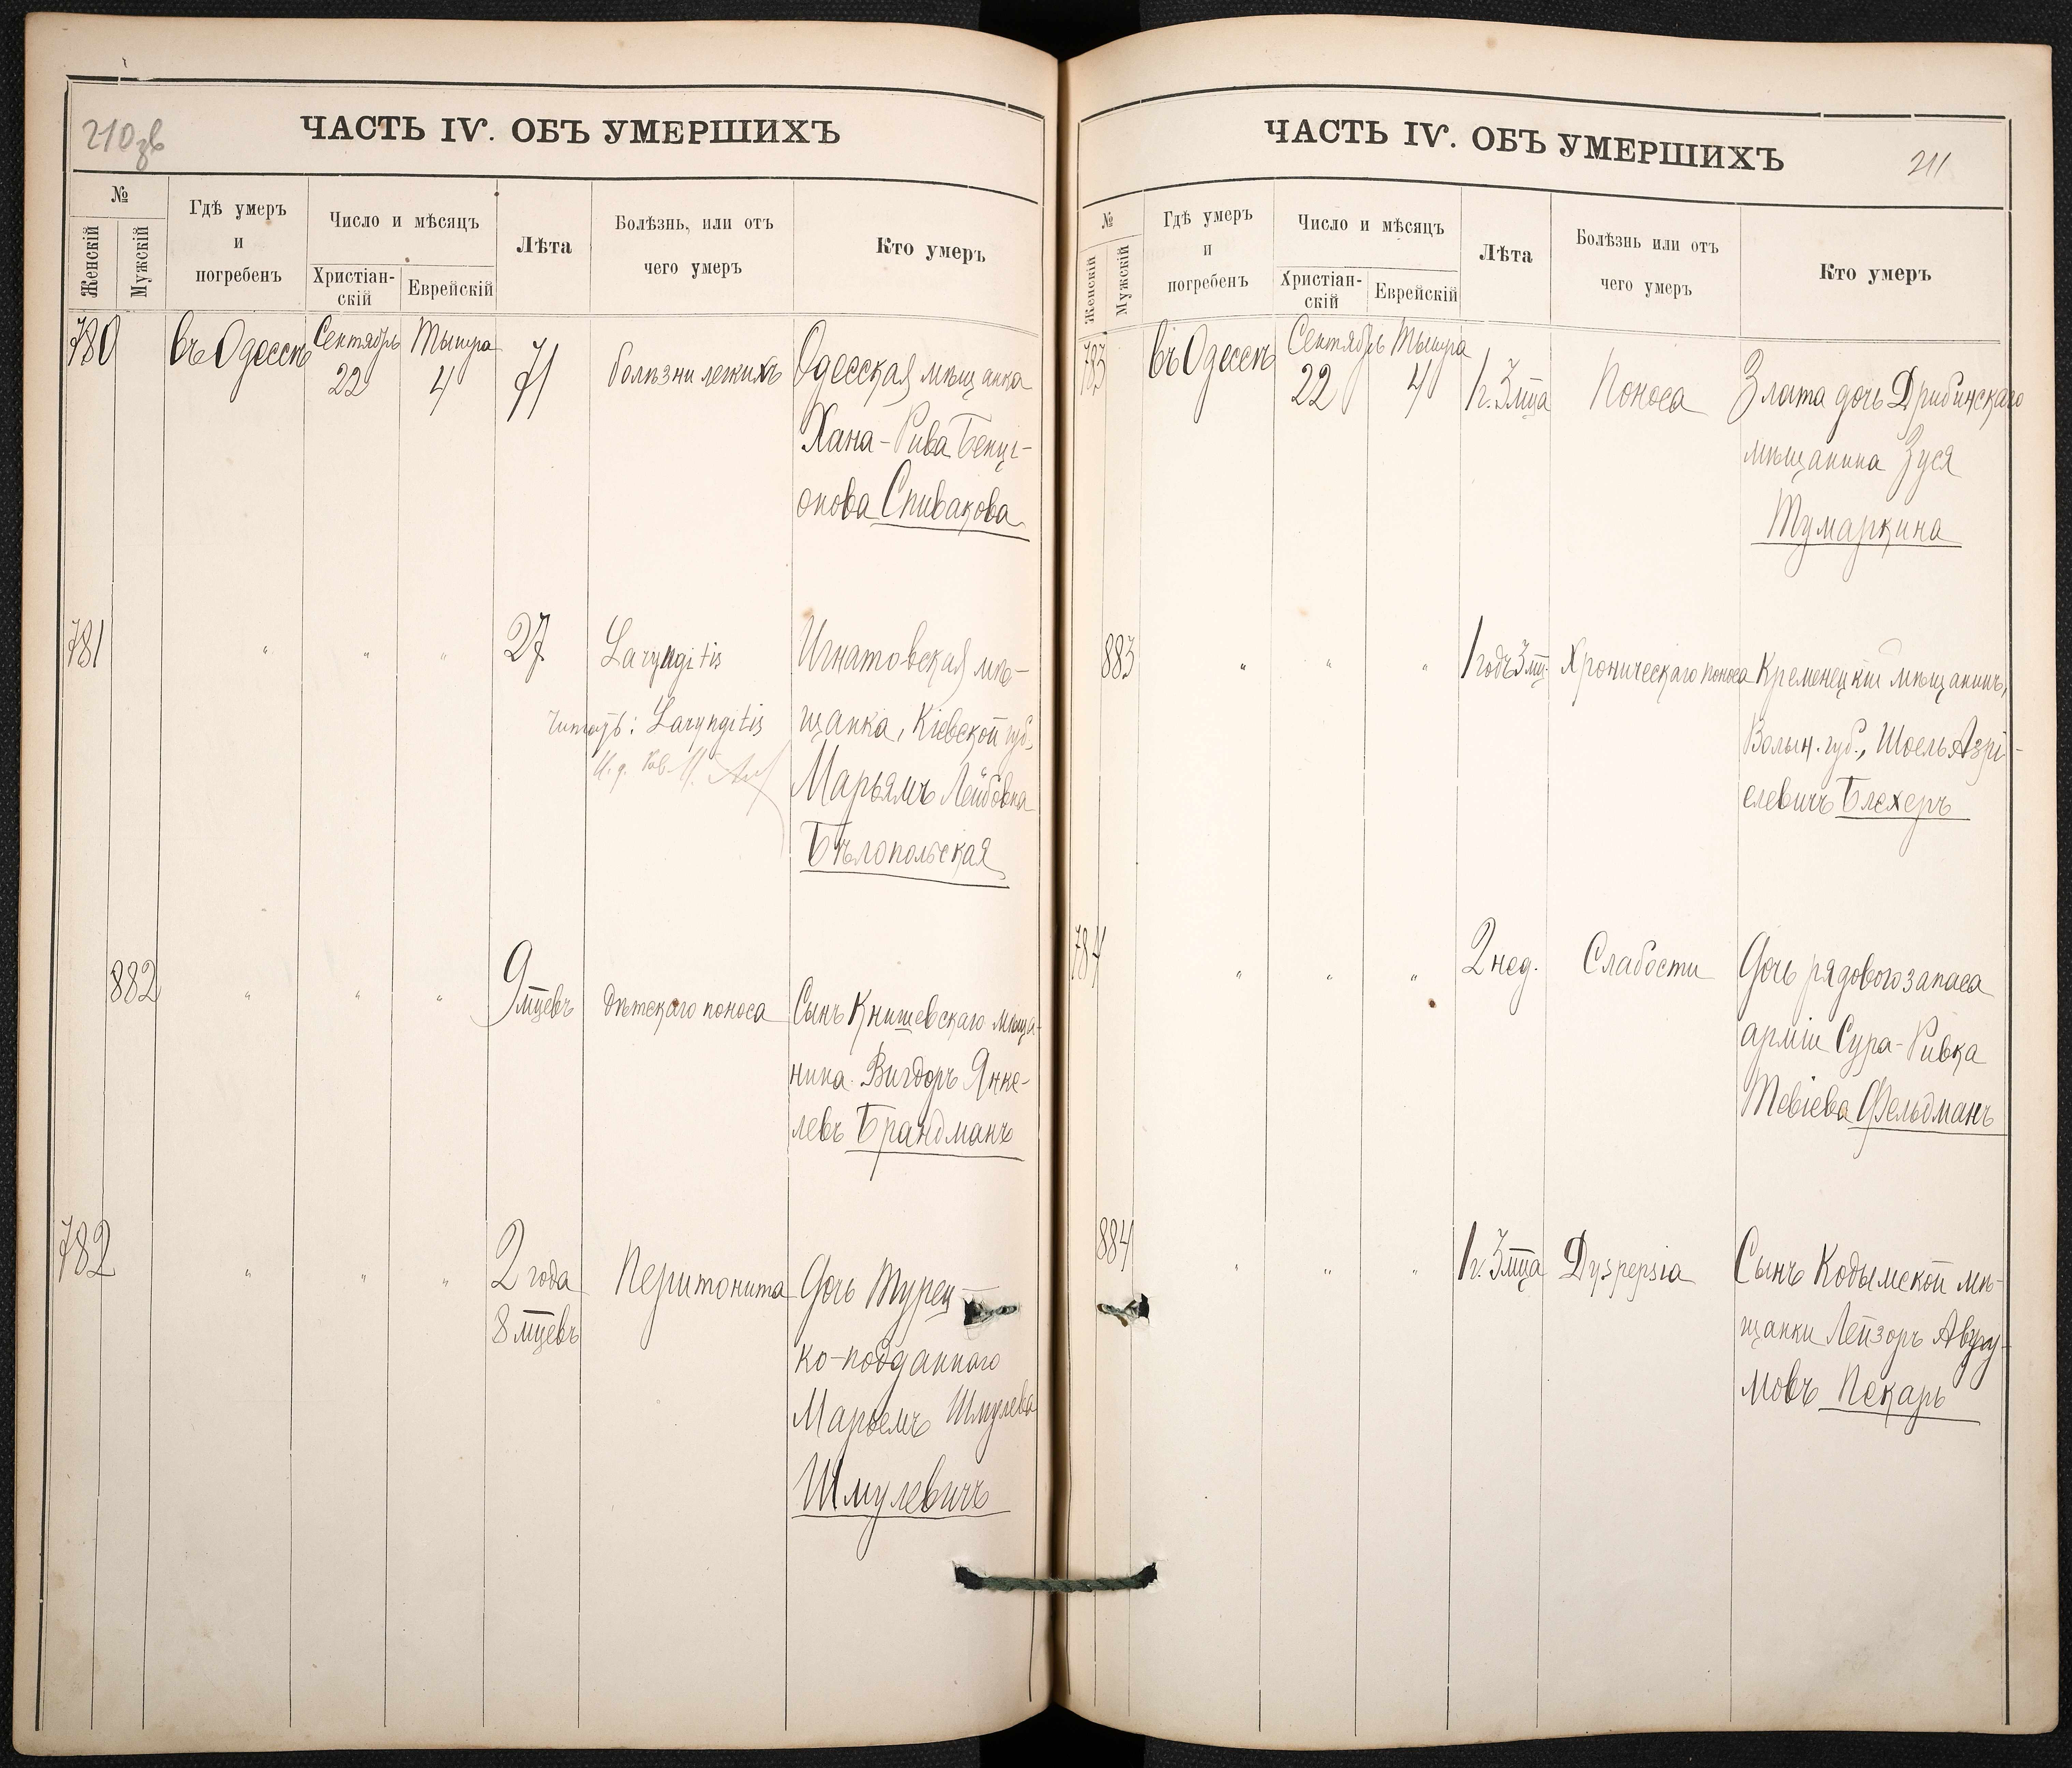 210 зв
ЧАСТЬ IV. ОБЪ УМЕРШИХЪ
№
Женскій
Мужскій
Гдѣ умеръ
и
погребенъ
Число и мѣсяцъ
Христіан-
скій
Еврейскій
Лѣта
Болѣзнь, или отъ
чего умеръ
Кто умеръ
780 въ Одессѣ Сентябрь 22 Тышра 4 71 болѣзни легкихъ Одесская мѣщанка
Хана-Рива Бенці-
онова Спивакова
781 " " " 27 Laryngitis Игнатовская мѣ-
Читать: Laryngitis щанка, Кіевской губ.,
И. д. Рав.
Марьямъ Лейбовна
Бѣлопольская
882 " " " 9 мцевъ дѣтскаго поноса Сынъ Кнышевскаго мѣща-
нина Вигдоръ Янке-
левъ Брандманъ
782 " " " 2 года Перитонита Дочь Турец-
8 мцевъ ко-подданнаго
Марьемъ Шмулева
Шмулевичъ
ЧАСТЬ IV. ОБЪ УМЕРШИХЪ
211
№
Женскій
Мужскій
Гдѣ умеръ
и
погребенъ
Число и мѣсяцъ
Христіан-
скій
Еврейскій
Лѣта
Болѣзнь или отъ
чего умеръ
Кто умеръ
783 въ Одессѣ Сентябрь 22 Тышра 4 1 г. 3 мца Поноса Злата дочь Дрибинскаго
мѣщанина Зуся
Тумаркина
883 " " " 1 годъ 3 мц. Хроническаго поноса Кременецкій мѣщанинъ,
Волын. губ., Шоель Азрі-
елевичъ Блехеръ
784 " " " 2 нед. Слабости Дочь рядового запаса
арміи Сура-Ривка
Тевіева Фельдманъ
884 " " " 1 г. 3 мца Dyspepsia Сынъ Кодымской мѣ-
щанки Лейзоръ Авру-
мовъ Пекарь